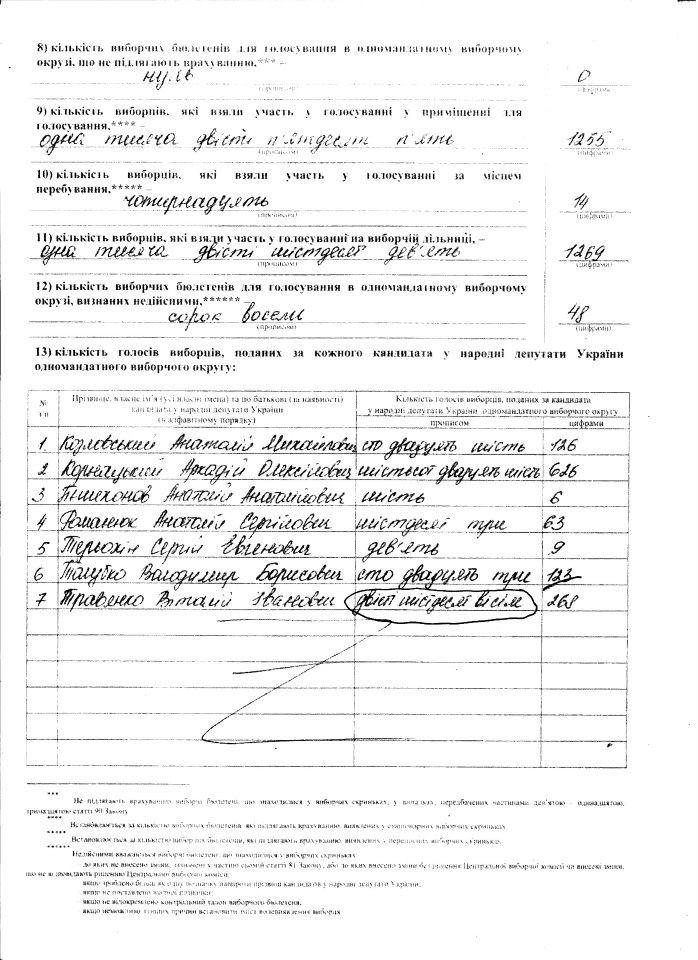 8) кількість виборчих бюлетенів для голосування в одномандатному виборчому
окрузі, що не підлягають врахуванню,*** –
нуль 0
(прописом) (цифрами)
9) кількість виборців, які взяли участь у голосуванні у приміщенні для
голосування,****
одна тисяча двісті п'ятдесят п'ять 1255
(прописом) (цифрами)
10) кількість виборців, які взяли участь у голосуванні за місцем
перебування,***** –
чотирнадцять 14
(прописом) (цифрами)
11) кількість виборців, які взяли участь у голосуванні на виборчій дільниці, –
одна тисяча двісті шістдесят дев'ять 1269
(прописом) (цифрами)
12) кількість виборчих бюлетенів для голосування в одномандатному виборчому
окрузі, визнаних недійсними,****** –
сорок 48
(прописом) (цифрами)
13) кількість голосів виборців, поданих за кожного кандидата у народні депутати України
одномандатного виборчого округу:
№ Прізвище, власне ім'я (усі власні імена) та по батькові (за наявності) Кількість голосів виборців, поданих за кандидата
п/п кандидата у народні депутати України у народні депутати України одномандатного виборчого округу
(в алфавітному порядку) прописом цифрами
1. Козловський Анатолій Михайлович сто двадцять шість 126
2 Корнацький Аркадій Олексійович шістьсот двадцять шість 626
3 Анатолій Анатолійович шість 6
4 Романюк Анатолій Сергійович шістдесят три 63
5 Терьохін Сергій Евгенович дев'ять 9
6 Володимир Борисович сто двадцять три 123
7 Травенко Віталій Іванович двісті шістдесят вісім 268
***
Не підлягають врахуванню виборчі бюлетені, що знаходилися у виборчих скриньках, у випадках, передбачених частинами дев'ятою – одинадцятою,
тринадцятою статті 90 Закону
****
Встановлюється за кількістю виборчих бюлетенів, які підлягають врахуванню, виявлених у стаціонарних виборчих скриньках
*****
Встановлюється за кількістю виборчих бюлетенів, які підлягають врахуванню, виявлених у переносних виборчих скриньках.
******
Недійсними вважаються виборчі бюлетені, що знаходилися у виборчих скриньках:
до яких не внесено зміни, зазначені у частині сьомій статті 81 Закону, або до яких внесено зміни без рішення Центральної виборчої комісії чи внесені зміни,
що не відповідають рішенню Центральної виборчої комісії
якщо зроблено більш як одну позначку навпроти прізвищ кандидатів у народні депутати України;
якщо не поставлено жодної позначки;
якщо не відокремлено контрольний талон виборчого бюлетеня,
якщо неможливо з інших причин встановити зміст волевиявлення виборця